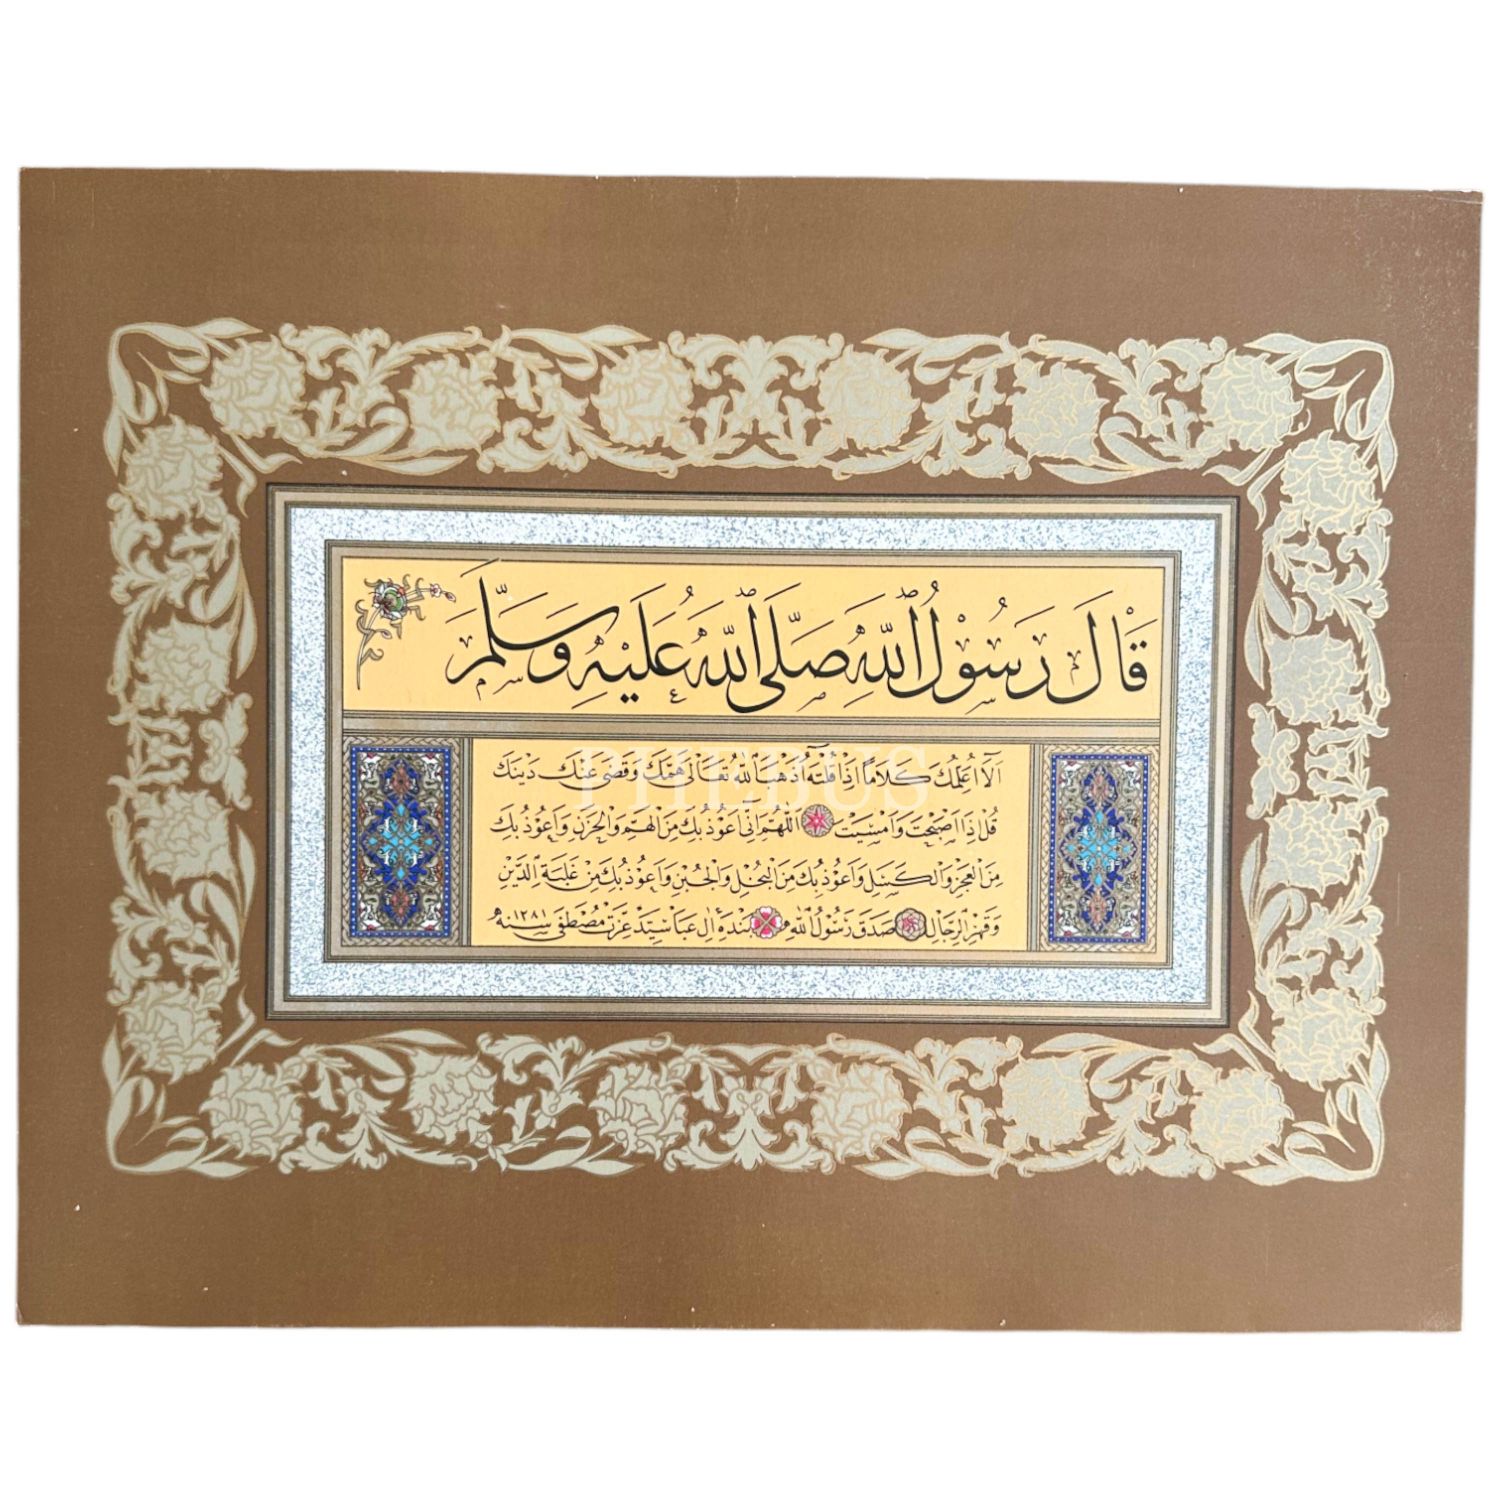 قَالَ رَسُوْلُ اللّٰهِ صَلَّى اللّٰهُ عَلَيْهِ وَسَلَّمَ
اَلَا اُعَلِّمُكَ كَلَامًا اِذَا قُلْتَهُ اَذْهَبَ اللّٰهُ تَعَالٰى هَمَّكَ وَقَضٰى عَنْكَ دَيْنَكَ
PHEBUS
قُلْ اِذَا اَصْبَحْتَ وَاَمْسَيْتَ اَللّٰهُمَّ اِنِّى اَعُوْذُ بِكَ مِنَ الْهَمِّ وَالْحَزَنِ وَاَعُوْذُ بِكَ
مِنَ الْعَجْزِ وَالْكَسَلِ وَاَعُوْذُ بِكَ مِنَ الْبُخْلِ وَالْجُبْنِ وَاَعُوْذُ بِكَ مِنْ غَلَبَةِ الدَّيْنِ
وَقَهْرِ الرِّجَالِ صَدَقَ رَسُوْلُ اللّٰهِ بندهٔ آل عبا سيد عزت مصطفى سنه ١٢٨١